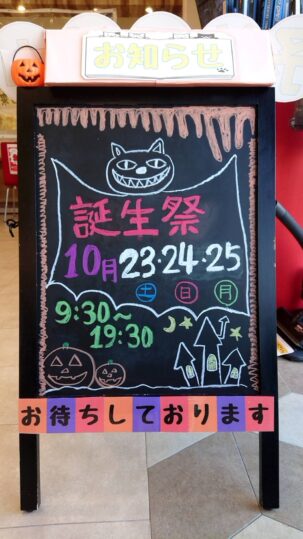 お知らせ
誕生祭
10月23・24・25
土 日 月
9:30～
19:30
お待ちしております